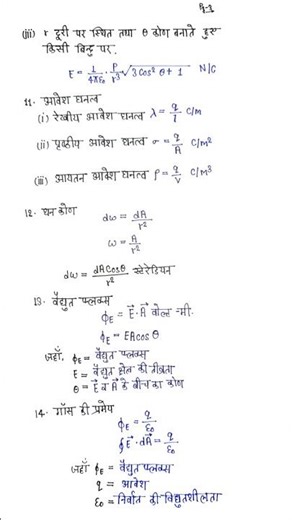 पृ-3
(iii) r दूरी पर स्थित तथा θ कोण बनाते हुए
किसी बिन्दु पर.
E = 1/4πε₀ · P/r³ √3cos²θ + 1 N/C
11. आवेश घनत्व
(i) रेखीय आवेश घनत्व λ = q/l C/m
(ii) पृष्ठीय आवेश घनत्व σ = q/A C/m²
(iii) आयतन आवेश घनत्व ρ = q/v C/m³
12. घन कोण
dω = dA/r²
ω = A/r²
dω = dA Cosθ/r² स्टेरेडियन
13. वैद्युत फ्लक्स
ϕE = E⃗ · A⃗ वोल्ट-मी.
ϕE = EA cosθ
जहाँ, ϕE = वैद्युत फ्लक्स
E = वैद्युत क्षेत्र की तीव्रता
θ = E⃗ व A⃗ के बीच का कोण
14. गॉस की प्रमेय
ϕE = q/ε₀
∮E⃗ · dA⃗ = q/ε₀
जहाँ ϕE = वैद्युत फ्लक्स
q = आवेश
ε₀ = निर्वात की विद्युतशीलता